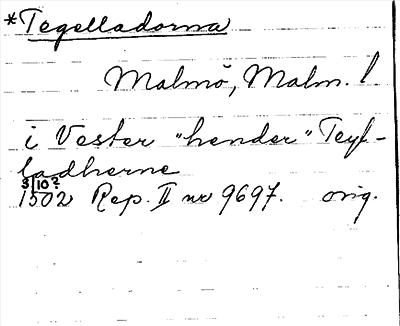 *Tegelladorna
Malmö, Malm. l
i Vester "hender" Teyl-
ladherne
8/10?
1502 Rep. II nr 9697. orig.